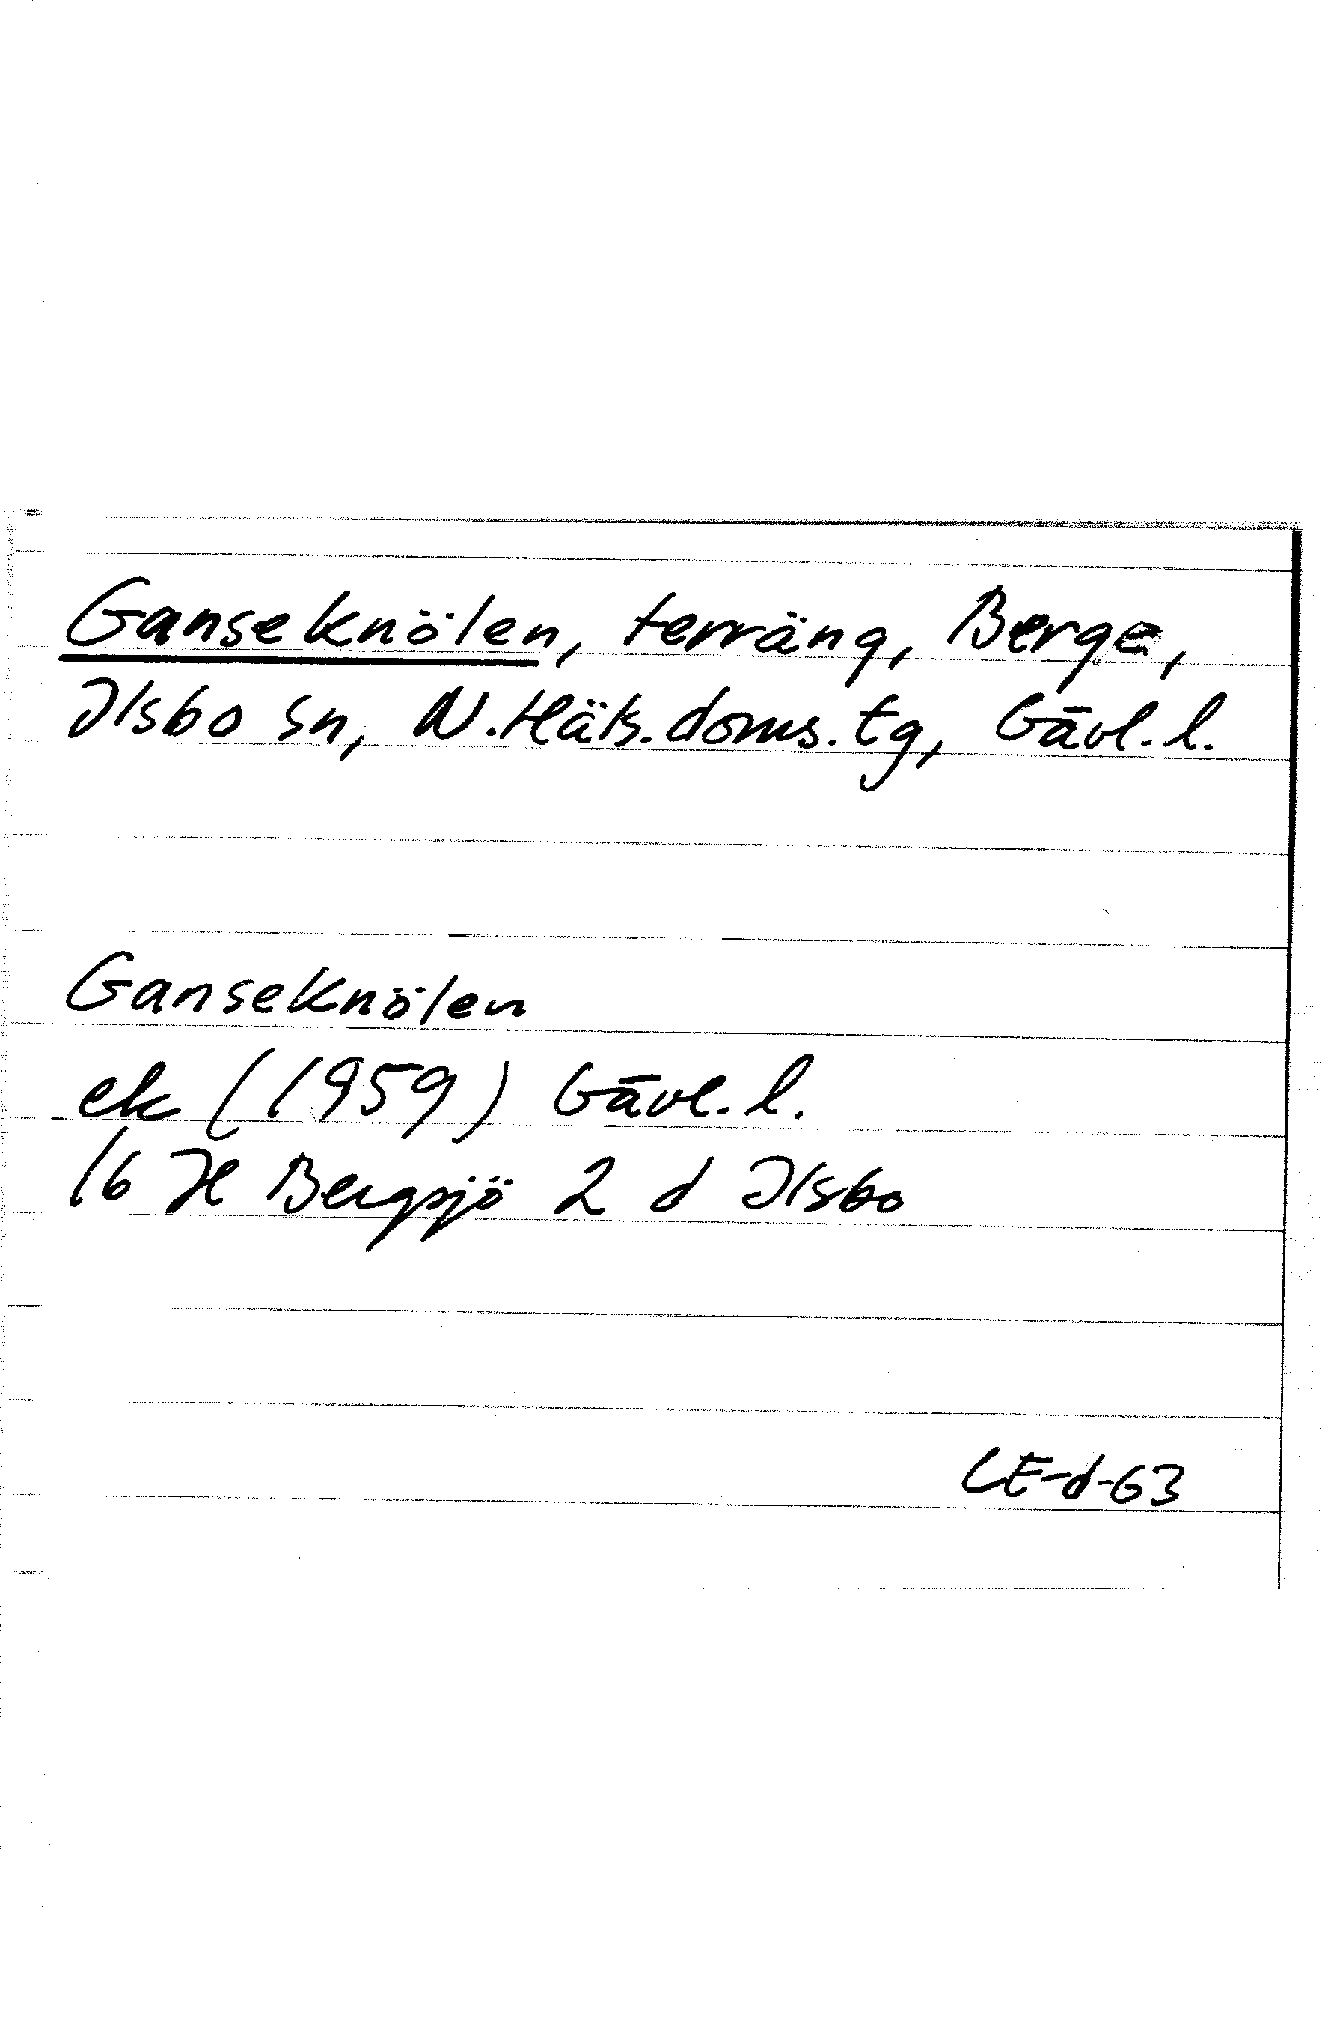 Ganseknölen, terräng, Berge,
Ilsbo sn, N.Häls.doms.tg, Gävl.l.
Ganseknölen
ek (1959) Gävl.l.
16 H Bergsjö 2 d Ilsbo
CE-d-63